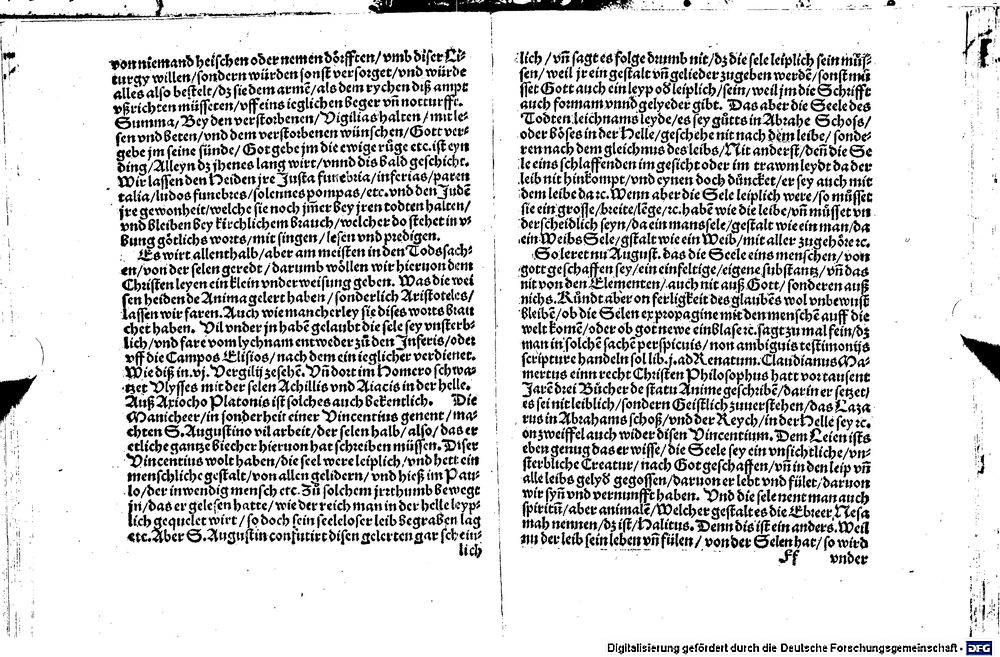 von niemand heischen oder nemen dörfften / vmb diser Li-
turgy willen / sondern würden sonst versorget / vnd würde
alles also bestelt / dz sie dem armē / als dem rychen diß ampt
vßrichten müssten / vff eins ieglichen beger vñ notturfft.
Summa / Bey den verstorbenen / Vigilias halten / mit le-
sen vnd beten / vnd dem verstorbenen wünschen / Gott ver-
gebe jm seine sünde / Got gebe jm die ewige rüge etc. ist eyn
ding / Alleyn dz jhenes lang wirt / vnnd dis bald geschicht.
Wir lassen den Heiden jre Justa funebria / inferias / paren
talia / ludos funebres / solennes pompas / etc. vnd den Judē
jre gewonheit / welche sie noch jm̄er bey jren todten halten /
vnd bleiben bey kirchlichem brauch / welcher do stehet in v-
bung götlichs worts / mit singen / lesen vnd predigen.
Es wirt allenthalb / aber am meisten in den Todssach-
en / von der selen geredt / darumb wöllen wir hieruon dem
Christen leyen ein klein vnderweisung geben. Was die wei
sen heiden de Anima gelert haben / sonderlich Aristoteles /
lassen wir faren. Auch wie mancherley sie dises worts brau
chet haben. Vil vnder jn habē gelaubt die sele sey vnsterb-
lich / vnd fare vom lychnam entweder zů den Inferis / oder
vff die Campos Elisios / nach dem ein ieglicher verdienet.
Wie diß in .vj. Vergilij zesehē. Vñ dort im Homero schwa-
tzet Vlysses mit der selen Achillis vnd Aiacis in der helle.
Auß Axiocho Platonis ist solches auch bekentlich. Die
Manicheer / in sonderheit einer Vincentius genent / ma-
chten S. Augustino vil arbeit / der selen halb / also / das er
etliche gantze biecher hieruon hat schreiben müssen. Diser
Vincentius wolt haben / die seel were leiplich / vnd hett ein
menschliche gestalt / von allen gelidern / vnd hieß im Pau-
lo / der inwendig mensch etc. Zů solchem jrrthumb bewegt
jn / das er gelesen hatte / wie der reich man in der helle leyp-
lich gequelet wirt / so doch sein seeleloser leib begraben lag
etc. Aber S. Augustin confutirt disen gelerten gar schein-
lich
lich / vñ sagt es folge drumb nit / dz die sele leiplich sein müs-
sen / weil jr ein gestalt vñ gelieder zugeben werdē / sonst mü
sset Gott auch ein leyp oď leiplich / sein / weil jm die Schrifft
auch formam vnnd gelyeder gibt. Das aber die Seele des
Todten leichnams leyde / es sey gůtts in Abrahe Schos /
oder böses in der Helle / geschehe nit nach dem leibe / sonde-
ren nach dem gleichnus des leibs / Nit anderst / deñ die Se
le eins schlaffenden im gesicht oder im trawm leydt da der
leib nit hinkompt / vnd eynen doch düncket / er sey auch mit
dem leibe da ꝛc. Wenn aber die Sele leiplich were / so müsset
sie ein grosse / breite / lēge / ꝛc. habē wie die leibe / vñ müsset vn
derscheidlich seyn / da ein mansele / gestalt wie ein man / da
ein Weibs Sele / gstalt wie ein Weib / mit aller zugehöre ꝛc.
So leret nu August. das die Seele eins menschen / von
gott geschaffen sey / ein einfeltige / eigene substantz / vñ das
nit von den Elementen / auch nit auß Gott / sonderen auß
nichs. Kündt aber on ferligkeit des glaubēs wol vnbewust
bleibē / ob die Selen ex propagine mit den menschē auff die
welt komē / oder ob got newe einblase ꝛc. sagt zu mal fein / dz
man in solchē sachē perspicuis / non ambiguis testimonijs
scripture handeln sol lib. j. ad Renatum. Claudianus Ma-
mertus einn recht Christen Philosophus hatt vor tausent
Jarē drei Bücher de statu Anime geschribē / dar in er setzet /
es sei nit leiblich / sondern Geistlich zuuerstehen / das Laza
rus in Abrahams schoß / vnd der Reych / in der Helle sey ꝛc.
on zweiffel auch wider disen Vincentium. Dem Leien ists
eben genug das er wisse / die Seele sey ein vnsichtliche / vn-
sterbliche Creatur / nach Got geschaffen / vñ in den leip vñ
alle leibs gelyď gegossen / daruon er lebt vnd fület / daruon
wir syñ vnd vernunfft haben. Vnd die sele nent man auch
spiritū / aber animale / Welcher gestalt es die Ebreer Nesa
mah nennen / dz ist / Halitus. Denn dis ist ein anders. Weil
nu der leib sein leben vñ fülen / von der Selen hat / so wird
Ff vnder
Digitalisierung gefördert durch die Deutsche Forschungsgemeinschaft - DFG